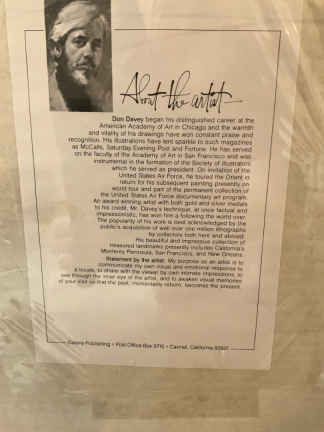 About the artist
Don Davey began his distinguished career at the
American Academy of Art in Chicago and the warmth
and vitality of his drawings have won constant praise and
recognition. His illustrations have lent sparkle to such magazines
as McCalls, Saturday Evening Post and Fortune. He has served
on the faculty of the Academy of Art in San Francisco and was
instrumental in the formation of the Society of Illustrators
which he served as president. On invitation of the
United States Air Force, he toured the Orient in
return for his subsequent painting presently on
world tour and part of the permanent collection of
the United States Air Force documentary art program.
An award winning artist with both gold and silver medals
to his credit, Mr. Davey's technique, at once factual and
impressionistic, has won him a following the world over.
The popularity of his work is best acknowledged by the
public's acquisition of well over one million lithographs
by collectors both here and abroad.
His beautiful and impressive collection of
treasured landmarks presently includes California's
Monterey Peninsula, San Francisco, and New Orleans.
Statement by the artist: My purpose as an artist is to
communicate my own visual and emotional response to
a locale, to share with the viewer by own intimate impressions, to
see through the inner eye of the artist, and to awaken visual memories
of your visit so that the past, momentarily reborn, becomes the present.
Publishing • Post Office Box • Carmel, California